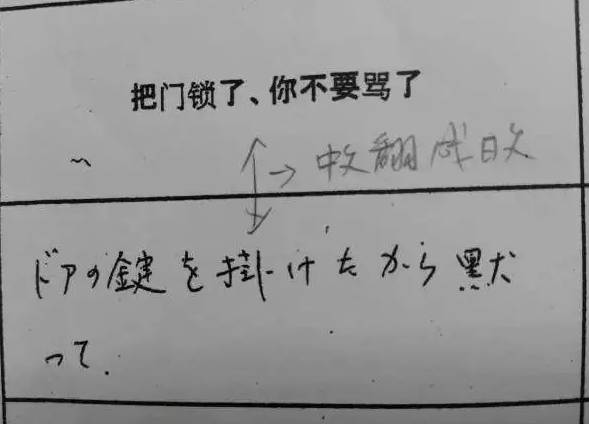 把门锁了、你不要骂了
→ 中文翻成日文
ドアの鍵を掛けたから黙
って.